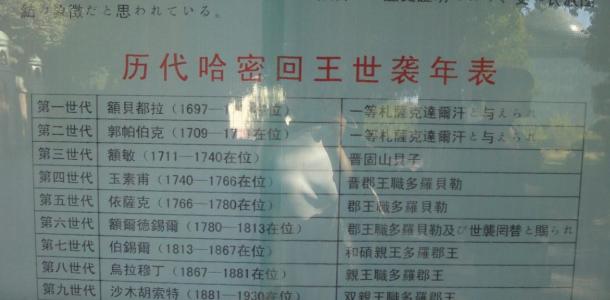 結の象徴だと思われている。
历代哈密回王世袭年表
第一世代 額貝都拉（1697— 位） 一等札薩克達爾汗と与えられ
第二世代 郭帕伯克（1709— 在位） 一等札薩克達爾汗と与えられ
第三世代 額敏（1711—1740在位） 晋固山貝子
第四世代 玉素甫（1740—1766在位） 晋郡王職多羅貝勒
第五世代 依薩克（1766—1780在位） 郡王職多羅貝勒
第六世代 額爾德錫爾（1780—1813在位） 郡王職多羅貝勒及び世襲罔替と賜られ
第七世代 伯錫爾（1813—1867在位） 和碩親王多羅郡王
第八世代 烏拉穆丁（1867—1881在位） 親王職多羅郡王
第九世代 沙木胡索特（1881—1930在位） 双親王職多羅郡王